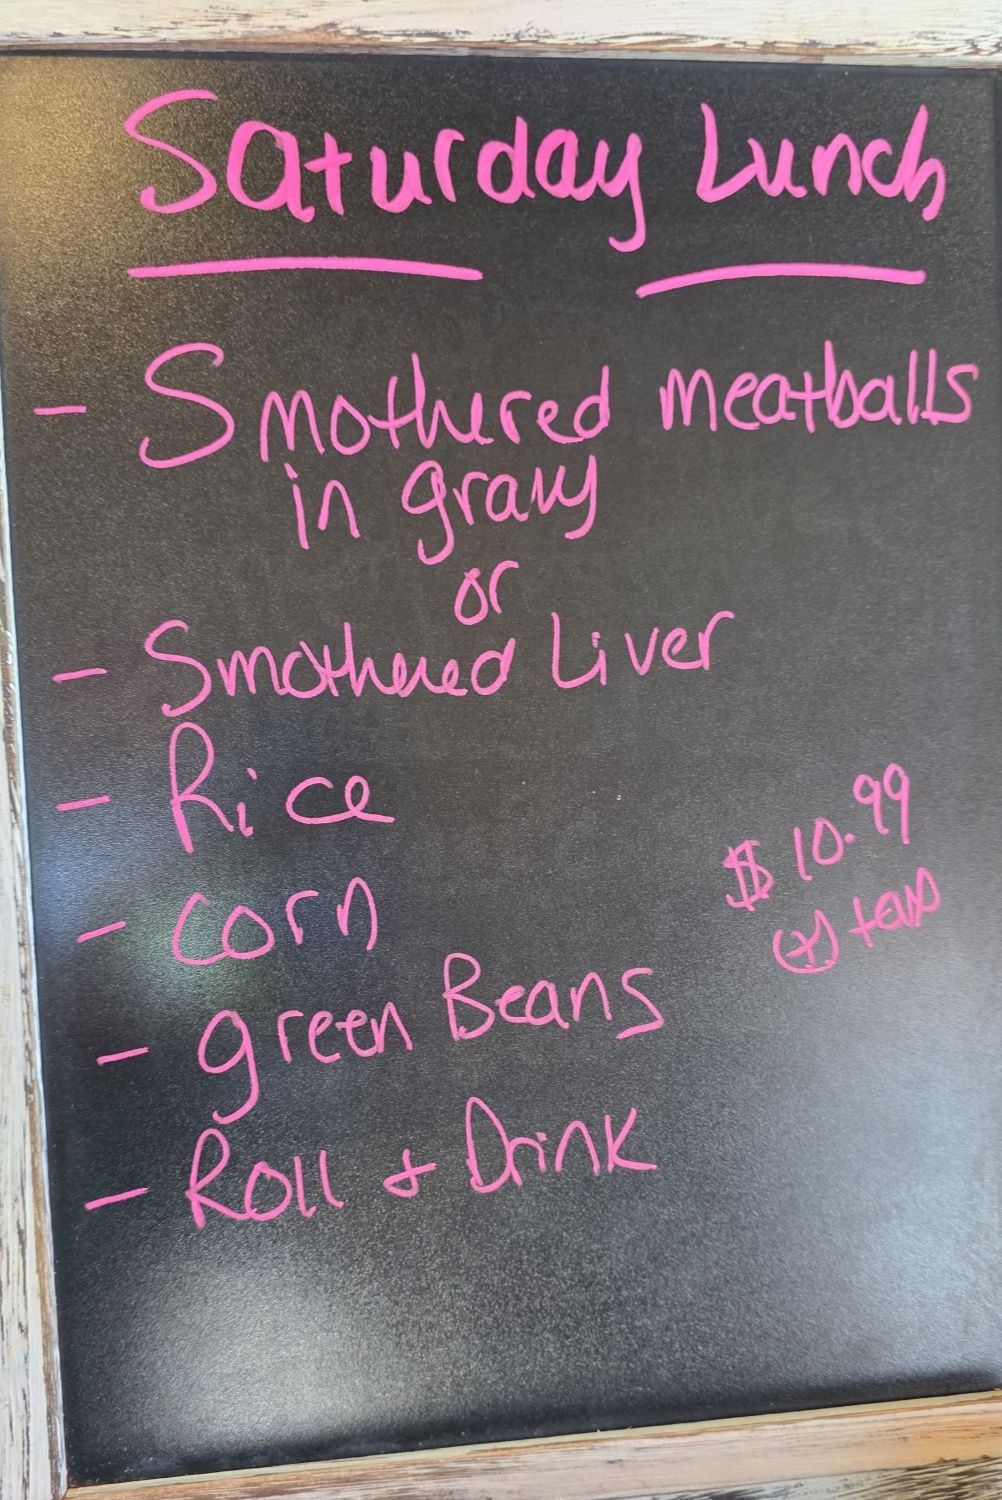 Saturday Lunch
- Smothered meatballs
in gravy
or
- Smothered Liver
- Rice
- Corn
$10.99
(+) tax
- green Beans
- Roll + Drink